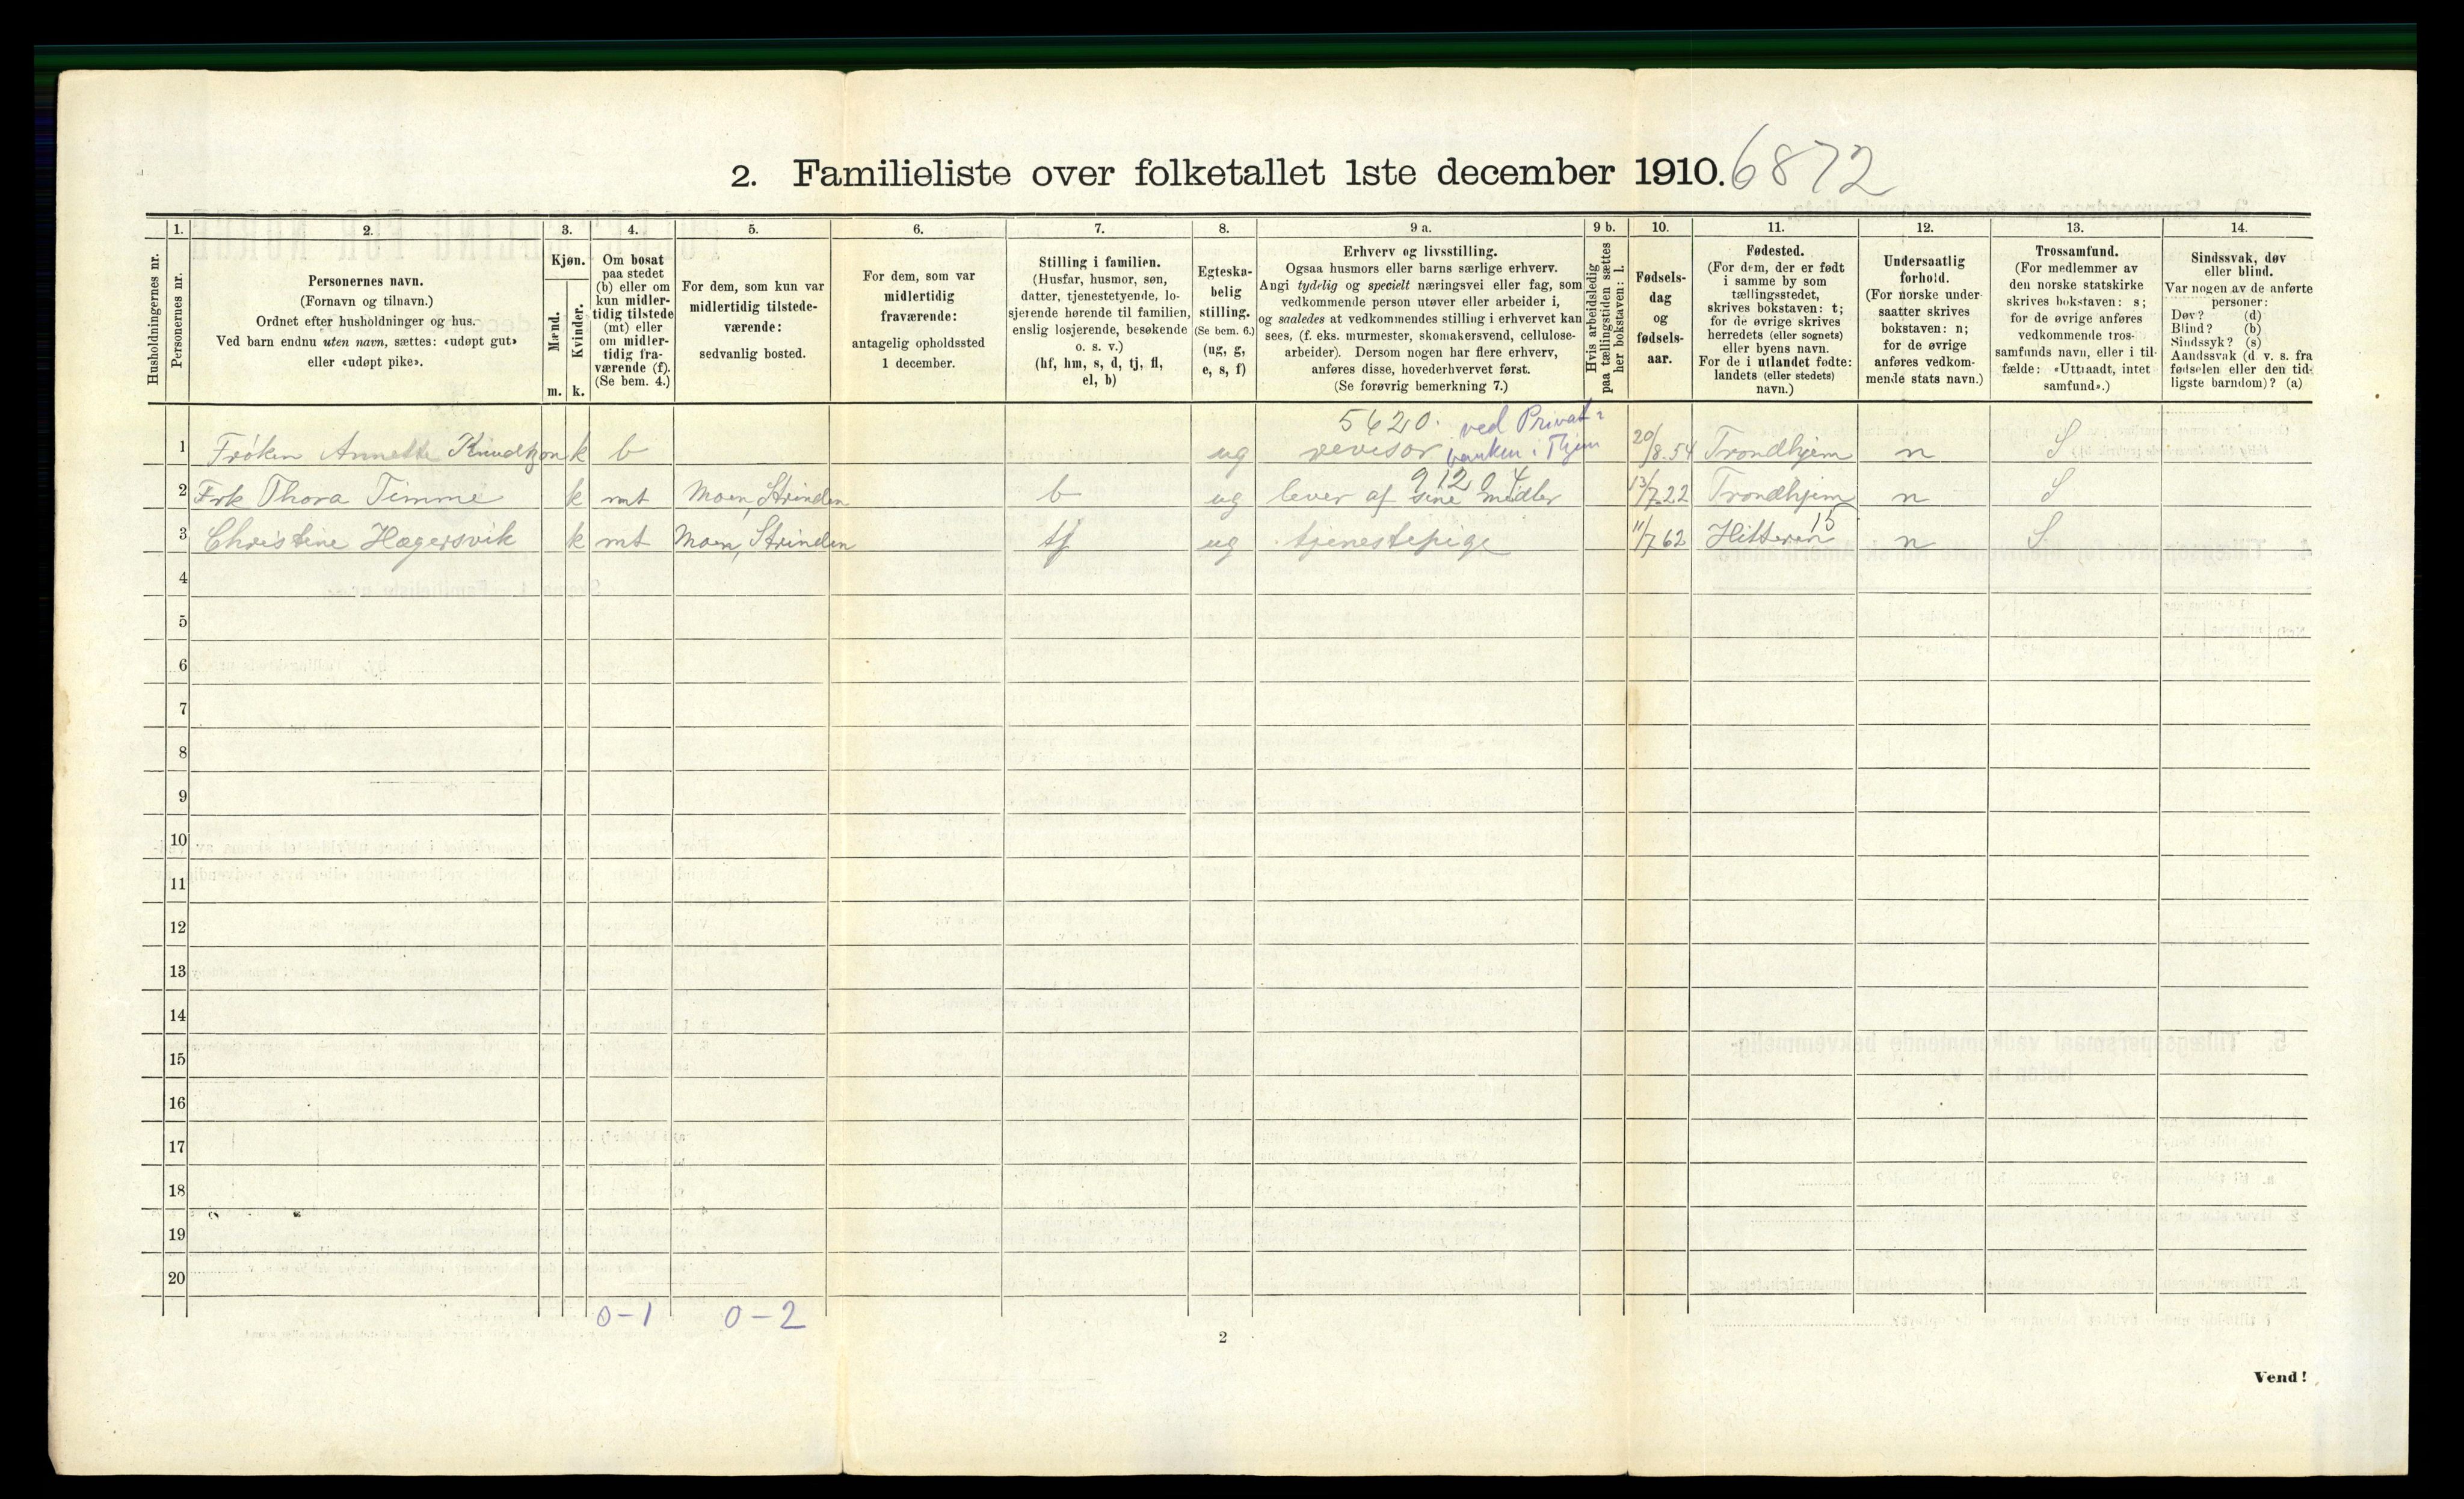 2. Familieliste over folketallet 1ste december 1910. 6872
Husholdningernes nr.
1.
Personernes nr.
2.
Personernes navn.
(Fornavn og tilnavn.)
Ordnet efter husholdninger og hus.
Ved barn endnu uten navn, sættes: «udøpt gut»
eller «udøpt pike».
3.
Kjøn.
Mænd.
Kvinder.
m. k.
4.
Om bosat
paa stedet
(b) eller om
kun midler-
tidig tilstede
(mt) eller
om midler-
tidig fra-
værende (f).
(Se bem. 4.)
5.
For dem, som kun var
midlertidig tilstede-
værende:
sedvanlig bosted.
6.
For dem, som var
midlertidig
fraværende:
antagelig opholdssted
1 december.
7.
Stilling i familien.
(Husfar, husmor, søn,
datter, tjenestetyende, lo-
sjerende hørende til familien,
enslig losjerende, besøkende
o. s. v.)
(hf, hm, s, d, tj, fl,
el, b)
8.
Egteska-
belig
stilling.
(Se bem. 6.)
(ug, g,
e, s, f)
9 a.
Erhverv og livsstilling.
Ogsaa husmors eller barns særlige erhverv.
Angi tydelig og specielt næringsvei eller fag, som
vedkommende person utøver eller arbeider i,
og saaledes at vedkommendes stilling i erhvervet kan
sees, (f. eks. murmester, skomakersvend, cellulose-
arbeider). Dersom nogen har flere erhverv,
anføres disse, hovederhvervet først.
(Se forøvrig bemerkning 7.)
9 b.
Hvis arbeidsledig
paa tællingstiden sættes
her bokstaven: l.
10.
Fødsels-
dag
og
fødsels-
aar.
11.
Fødested.
(For dem, der er født
i samme by som
tællingsstedet,
skrives bokstaven: t;
for de øvrige skrives
herredets (eller sognets)
eller byens navn.
For de i utlandet fødte:
landets (eller stedets)
navn.)
12.
Undersaatlig
forhold.
(For norske under-
saatter skrives
bokstaven: n;
for de øvrige
anføres vedkom-
mende stats navn.)
13.
Trossamfund.
(For medlemmer av
den norske statskirke
skrives bokstaven: s;
for de øvrige anføres
vedkommende tros-
samfunds navn, eller i til-
fælde: «Uttraadt, intet
samfund».)
14.
Sindssvak, døv
eller blind.
Var nogen av de anførte
personer:
Døv? (d)
Blind? (b)
Sindssyk? (s)
Aandssvak (d. v. s. fra
fødselen eller den tid-
ligste barndom)? (a)
5620. ved Privat-
1 Frøken Annette Knudtzon k b ug revisor banken i Thjem 20/8.54 Trondhjem n S
9120 4
2 Frk Thora Timme k mt Moen, Strinden b ug lever af sine midler 13/7.22 Trondhjem n S
15
3 Christine Hægersvik k mt Moen, Strinden tj ug tjenestepige 11/7 62 Hitteren n S
4
5
6
7
8
9
10
11
12
13
14
15
16
17
18
19
20
0-1 0-2
2
Vend!